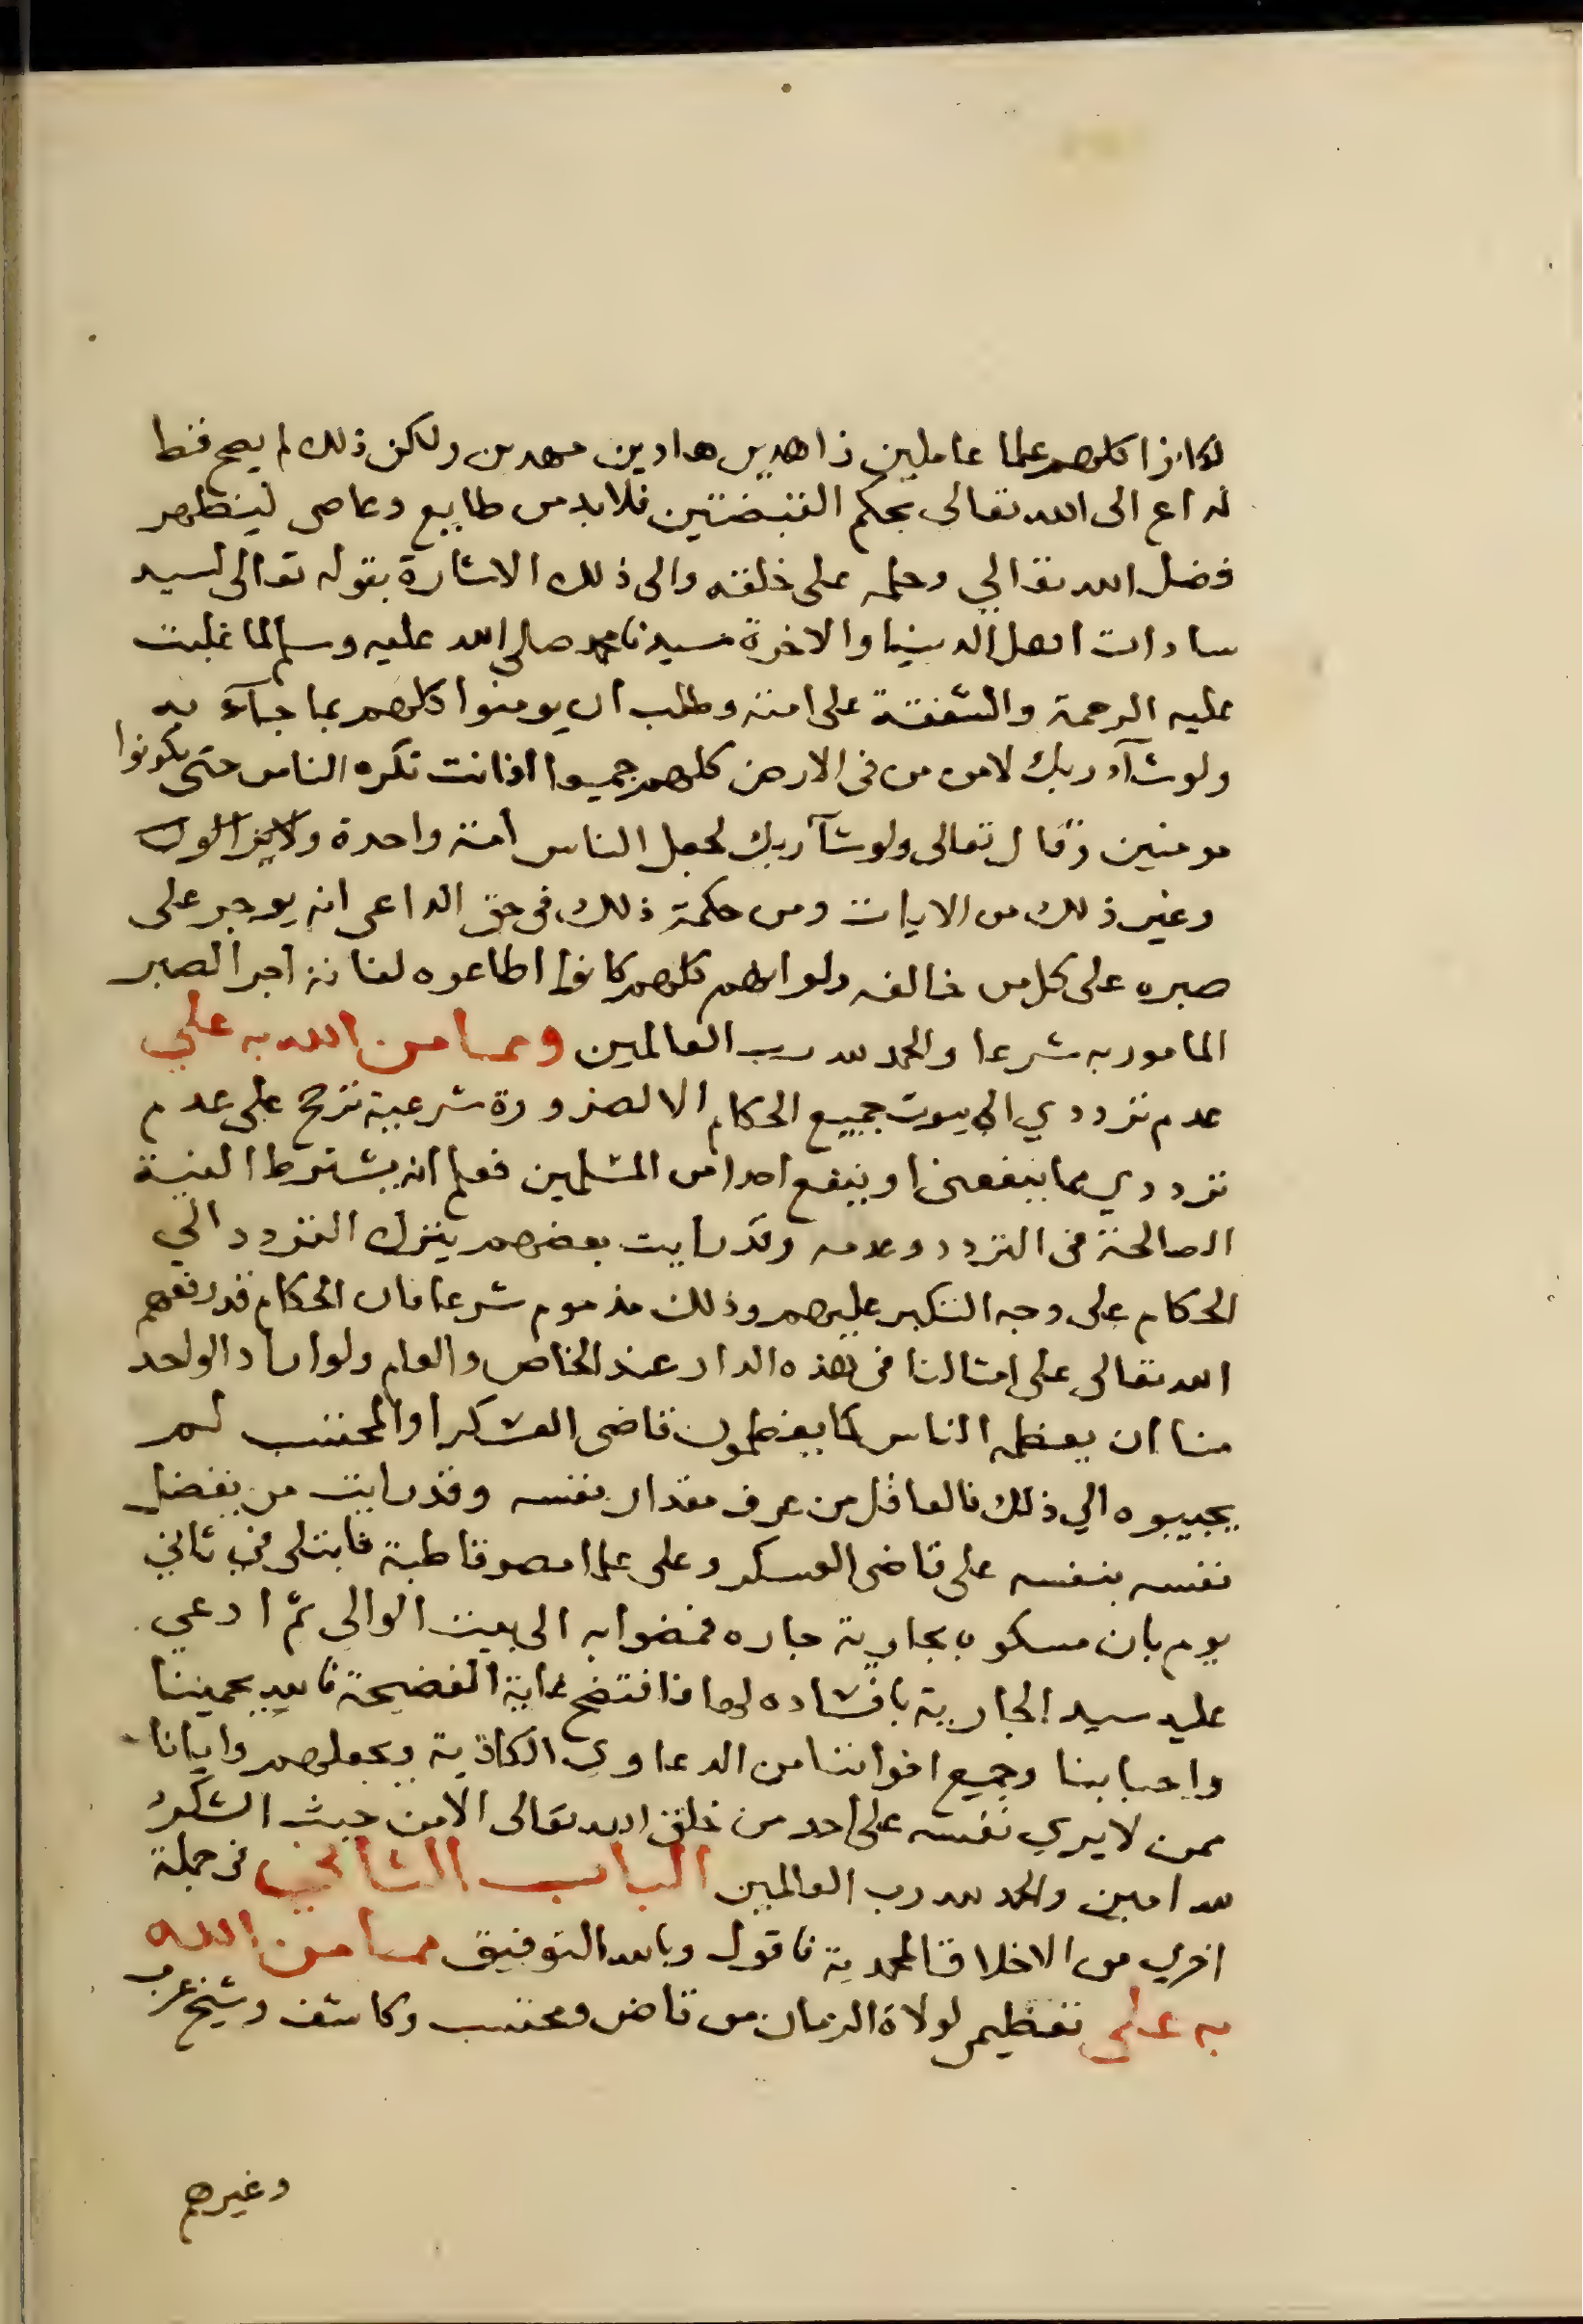 لكانوا كلهم علما عاملين زاهدين هادين مهديين ولكن ذلك لم يصح قط
لداع الى الله تعالى بحكم القبضتين فلابد من طايع وعاصى ليظهر
فضل الله تعالي وحلمه على خلقه والى ذلك الاشارة بقوله تعالى لسيد
سادات اهل الدينيا والاخرة سيدنا محمد صلى الله عليه وسلم لما غلبت
عليه الرحمة والشفقة على امته وطلب ان يومنوا كلهم بما جآء به
ولو شآء ربك لامن من فى الارض كلهم جميعا افانت تكره الناس حتى يكونوا
مومنين وقال تعالى ولو شآ ربك لجعل الناس امة واحدة ولايزالون
وغير ذلك من الايات ومن حكمة ذلك فى حق الداعى انه يوجر على
صبره على كل من خالفه ولو انهم كلهم كانوا اطاعوه لفاته اجر الصبر
المامور به شرعا والحمد لله رب العالمين ومما من الله به علي
عدم ترددي الي بيوت جميع الحكام الا لضرورة شرعية ترجح على عدم
ترددي مما ينفعنى او ينفع احدا من المسلمين فعلم انه يشترط النية
الصالحة فى التردد وعدمه وقد رايت بعضهم يترك التردد الي
الحكام على وجه التكبر عليهم وذلك مذموم شرعا فان الحكام قد رفعهم
الله تعالى على امثالنا فى هذه الدار عند الخاص والعام ولو اراد الواحد
منا ان يعظمه الناس كما يعظمون قاضى العسكر او المحتسب لم
يجيبوه الي ذلك فالعاقل من عرف مقدار نفسه وقد رايت من يفضل
نفسه بنفسه على قاضى العسكر وعلى علما مصر قاطبة فابتلى في ثاني
يوم بان مسكوه بجارية جاره فمضوا به الى بيت الوالى ثم ادعي
عليه سيد الجارية بافساده لها فافتضح غاية الفضيحة فالله يحمينا
واحبابنا وجميع اخواننا من الدعاوى الكاذبة ويجعلهم وايانا
ممن لا يري نفسه على احد من خلق الله تعالى الا من حيث الشكر
لله امين والحمد لله رب العالمين الباب الثاني فى جملة
اخرى من الاخلاق المحمدية فاقول وبالله التوفيق مما من الله
به على تعظيمى لولاة الزمان من قاض ومحتسب وكاشف وشيخ عرب
وغيرهم